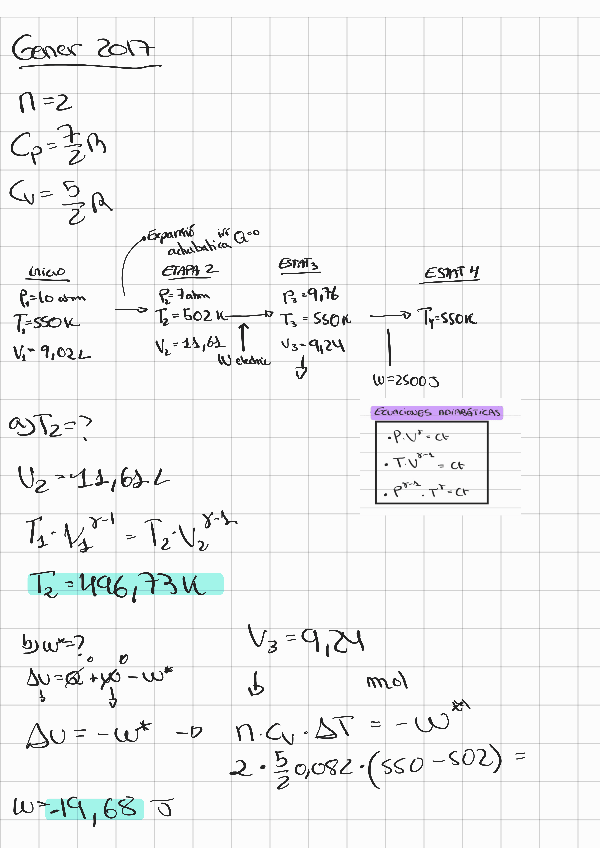 Gener 2017
n=2
Cp = 7/2 R
Cv = 5/2 R
Expansió irr
adiabatica Q=0
inicio
P₁=10 atm
T₁=550K
V₁=9,02L
ETAPA 2
P₂=7atm
T₂=502K
V₂=11,61
W electric
ESTAT 3
P₃=9,76
T₃=550K
V₃=9,24
ESTAT 4
T₄=550K
W=2500J
ECUACIONES ADIABÁTICAS
• P·V^γ = ct
• T·V^γ-1 = ct
• P^γ-1 · T^γ = ct
a) T₂=?
V₂=11,61L
T₁·V₁^γ-1 = T₂·V₂^γ-1
T₂=496,73K
b) w*=?
V₃=9,24
0 0
ΔU = Q + W - W*
mol
ΔU = -W* → n·Cv·ΔT = -W*
2·5/2 0,082·(550-502) =
W=-19,68 J